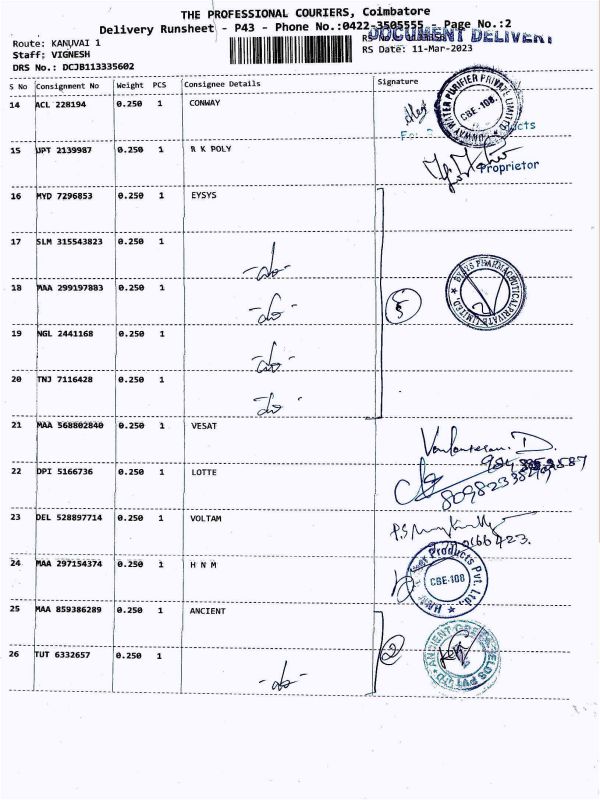 THE PROFESSIONAL COURIERS, Coimbatore
Delivery Runsheet - P43 - Phone No.:0422-3505555 - Page No.:2
DOCUMENT DELIVERY
Route: KANUVAI 1
Staff: VIGNESH
RS Date: 11-Mar-2023
DRS No.: DCJB113335602
S No Consignment No Weight PCS Consignee Details Signature
14 ACL 228194 0.250 1 CONWAY
CONWAY WATER PURIFIER PRIVATE LIMITED
CBE-108.
15 JPT 2139987 0.250 1 R K POLY
Proprietor
16 MYD 7296853 0.250 1 EYSYS
17 SLM 315543823 0.250 1
-do-
18 MAA 299197883 0.250 1
-do-
5
EYSYS PHARMACEUTICAL PRIVATE LIMITED.
19 NGL 2441168 0.250 1
-do-
20 TNJ 7116428 0.250 1
-do-
21 MAA 568802840 0.250 1 VESAT
22 DPI 5166736 0.250 1 LOTTE
23 DEL 528897714 0.250 1 VOLTAM
24 MAA 297154374 0.250 1 H N M
Products Pvt. Ltd.,
CBE-108
25 MAA 859386289 0.250 1 ANCIENT
2
26 TUT 6332657 0.250 1
-do-